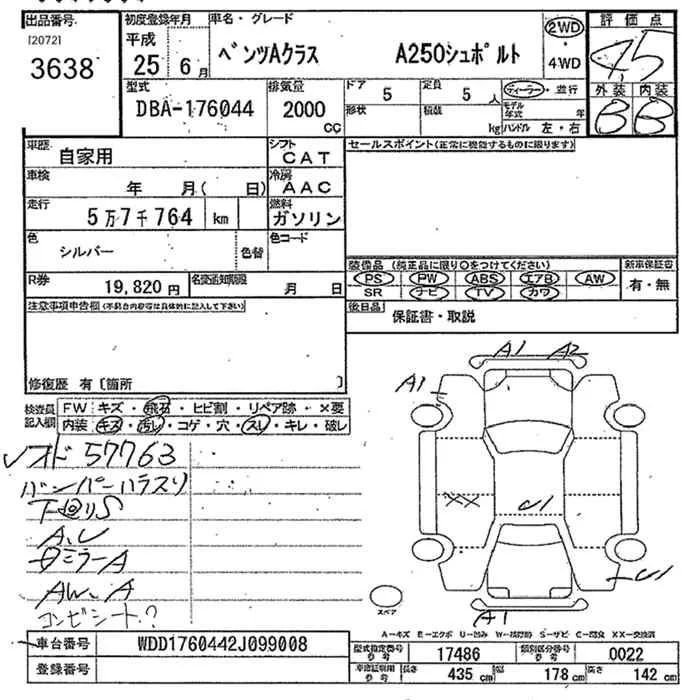 出品番号
[2072]
3638
初度登録年月
平成
25 6 月
車名・グレード
ベンツAクラス A250シュポルト
2WD
・
4WD
評価点
4.5
外装 内装
B B
型式
DBA-176044
排気量
2000
cc
ドア 5
定員 5 人
形状
積載 kg
ディーラー・並行
モデル年式 年
ハンドル 左・右
車歴
自家用
シフト
CAT
車検
年 月( 日)
冷房
AAC
走行
5万7千764 km
燃料
ガソリン
色
シルバー
色替
色コード
R券
19,820 円
名変通知期限
月 日
セールスポイント(正常に機能するものに限ります)
装備品 (純正品に限り〇をつけてください)
PS PW ABS エアB AW
SR ナビ TV カワ
新車保証書
有・無
後日品
保証書・取説
注意事項申告欄(不具合内容等は具体的に記入して下さい)
修復歴 有〔箇所 〕
検査員
記入欄
FW キズ・飛石・ヒビ割・リペア跡・×要
内装 キズ・汚れ・コゲ・穴・スレ・キレ・破レ
57763
バンパーハラスリ
下回りS
A,U
ミラーA
AW.A
コンビシート?
A1 A2
A1
XX
U1
U1
A1
スペア
A-キズ E-エクボ U-凹み W-補修跡 S-サビ C-腐食 XX-交換済
車台番号
WDD1760442J099008
登録番号
型式指定番号
17486
類別区分番号
0022
長さ 435 cm
幅 178 cm
高さ 142 cm